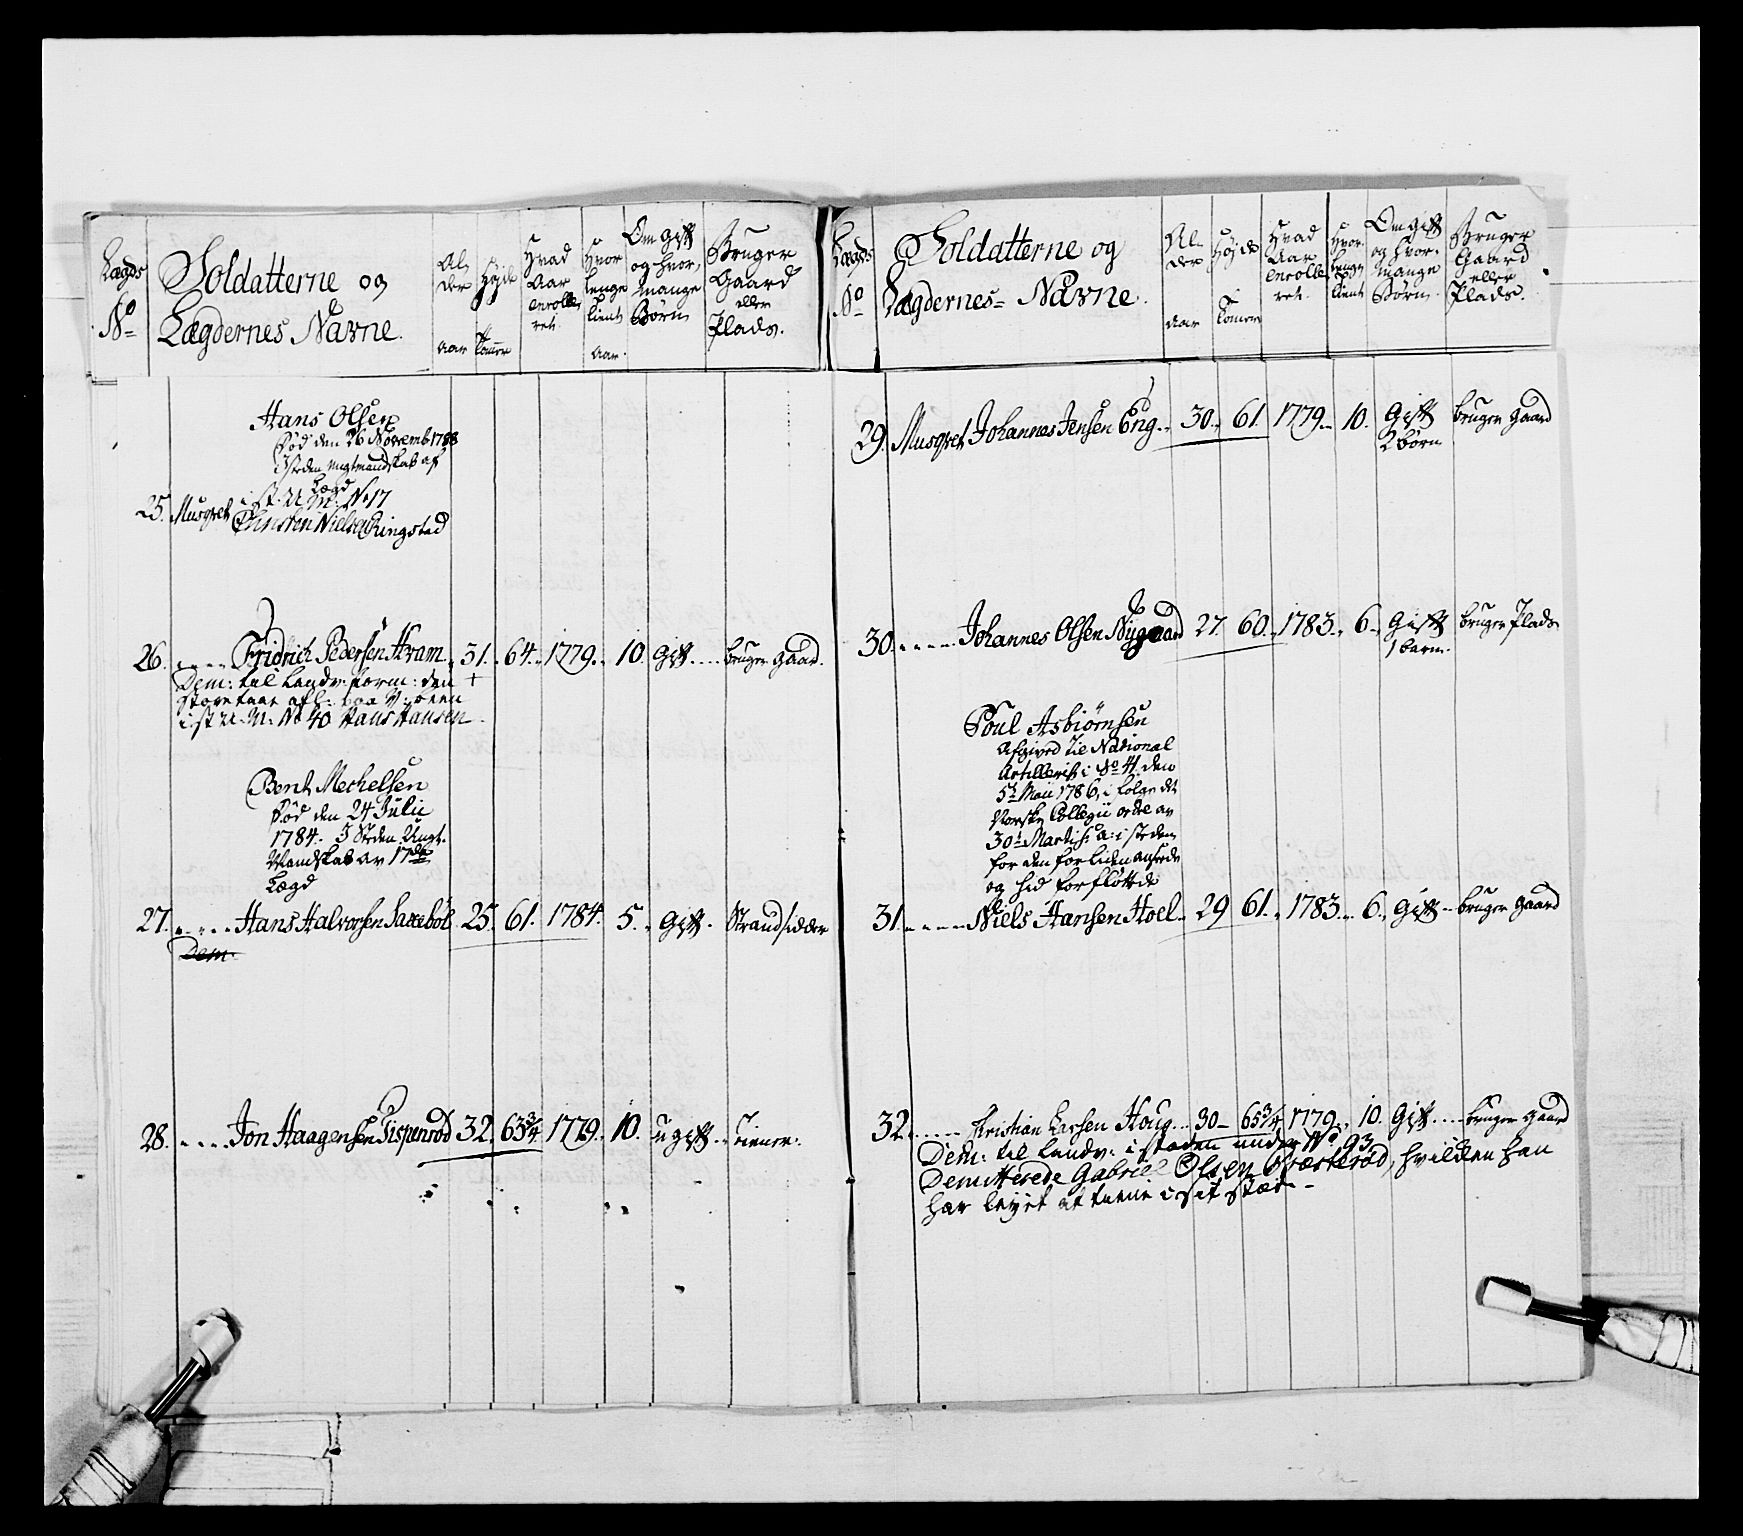 Lægds
No
Soldatterne og
Lægdernes Navne.
Al,
der
Aar
Højde
Tommer
Hvad
Aar
enrolle,
ret.
Hvor
lenge
tient
Aar.
Om gift
og hvor,
mange
Børn
Bruger
Gaard
eller
Plads.
Hans Olsen
Død den 26 Novemb. 1788
I steden ungtmandskab af
Lægd
i st. U. M. No 17
25. Musqvet Christen Nielsen Ringstad
26. Fridrich Pedersen Kram 31. 64. 1779. 10. Gift bruger Gaard.
Dem: til Landv: form: den +
i st U. M: No 40 Hans Hansen
Bent Mechelsen
Død den 24 Julii
1784. I Steden Ungt-
Mandskab av 17de
Lægd
27. Hans Halvorsen Saxebøl 25. 61. 1784. 5. Gift. Strandsidder
Dem:
28. Jon Haagensen Gispenrød 32. 63 3/4 1779. 10. ugift tiener.
Lægds
No
Soldatterne og
Lægdernes Navne.
Al-
der
Aar
Højde
Tomer
Hvad
Aar
enrolle
ret.
Hvor
lenge
tient
Om gift
og hvor-
mange
Børn.
Bruger
Gaard
eller
Plads.
29. Musqvet Johannes Jensen Eng 30. 61. 1779. 10. Gift bruger Gaard
2 børn
30. Johannes Olsen Nygaard 27. 60. 1783. 6. Gift bruger Plads
1 barn.
Poul Asbiørnsen
Afgived til National
Artilleriet i No 4 den
5te Maii 1786, i følge det
Norske Collegii ordre av
30te Martii s: a: i steden
for den for liden ansede
og hid forfløttede
31. Niels Hansen Hoel 29 61. 1783. 6. Gift bruger Gaard
32. Christian Larsen Houg 30 65 3/4 1779. 10. Gift bruger Gaard
Dem: til Landv: i staden under No 93
Demitterede Gabriel Olsen Præsterød, hvilken han
har lejet at tiene i sit stæd